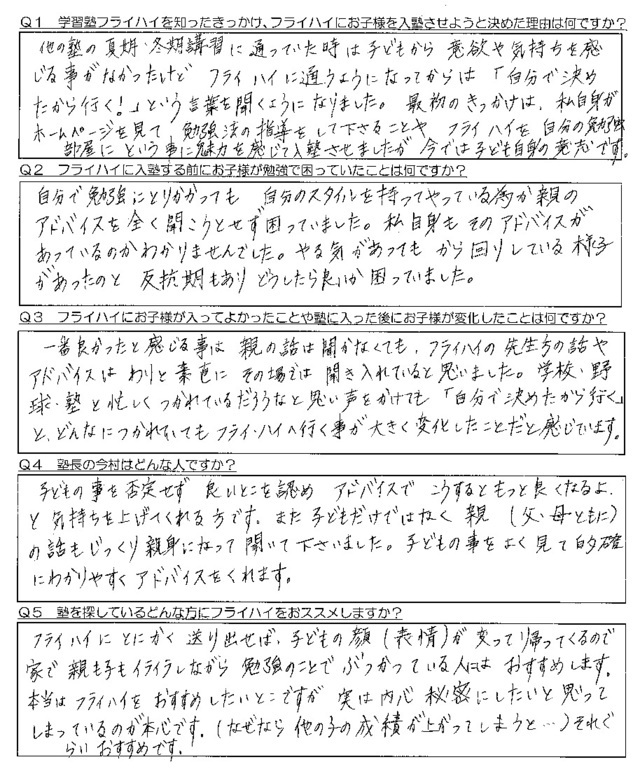 Q1 学習塾フライハイを知ったきっかけ、フライハイにお子様を入塾させようと決めた理由は何ですか？
他の塾の夏期・冬期講習に通っていた時は子どもから意欲や気持ちを感
じる事がなかったけど フライハイに通うようになってからは「自分で決め
たから行く！」という言葉を聞くようになりました。 最初のきっかけは、私自身が
ホームページを見て 勉強法の指導をして下さることや フライハイを自分の勉強
部屋にという事に魅力を感じて入塾させましたが 今では子ども自身の意志です。
Q2 フライハイに入塾する前にお子様が勉強で困っていたことは何ですか？
自分で勉強にとりかかっても 自分のスタイルを持ってやっている為か親の
アドバイスを全く聞こうとせず困っていました。私自身もそのアドバイスが
あっているのかわかりませんでした。やる気があっても から回りしている様子
があったのと 反抗期もあり どうしたら良いか困っていました。
Q3 フライハイにお子様が入ってよかったことや塾に入った後にお子様が変化したことは何ですか？
一番良かったと感じる事は 親の話は聞かなくても、フライハイの先生方の話や
アドバイスは わりと素直に その場では 聞き入れていると思いました。学校・野
球・塾と忙しくつかれているだろうなと思い声をかけても「自分で決めたから行く」
と、どんなにつかれていてもフライ・ハイへ行く事が大きく変化したことだと感じています。
Q4 塾長の今村はどんな人ですか？
子どもの事を否定せず 良いとこを認め アドバイスで こうするともっと良くなるよ、
と気持ちを上げてくれる方です。また子どもだけではなく 親（父・母ともに）
の話もじっくり親身になって聞いて下さいました。子どもの事をよく見て的確
にわかりやすくアドバイスをくれます。
Q5 塾を探しているどんな方にフライハイをおススメしますか？
フライハイにとにかく送り出せば、子どもの顔（表情）が変って帰ってくるので
家で親も子もイライラしながら勉強のことでぶつかっている人にはおすすめします。
本当はフライハイをおすすめしたいとこですが 実は内心秘密にしたいと思って
しまっているのが本心です。（なぜなら他の子の成績が上がってしまうと…）それぐ
らいおすすめです。